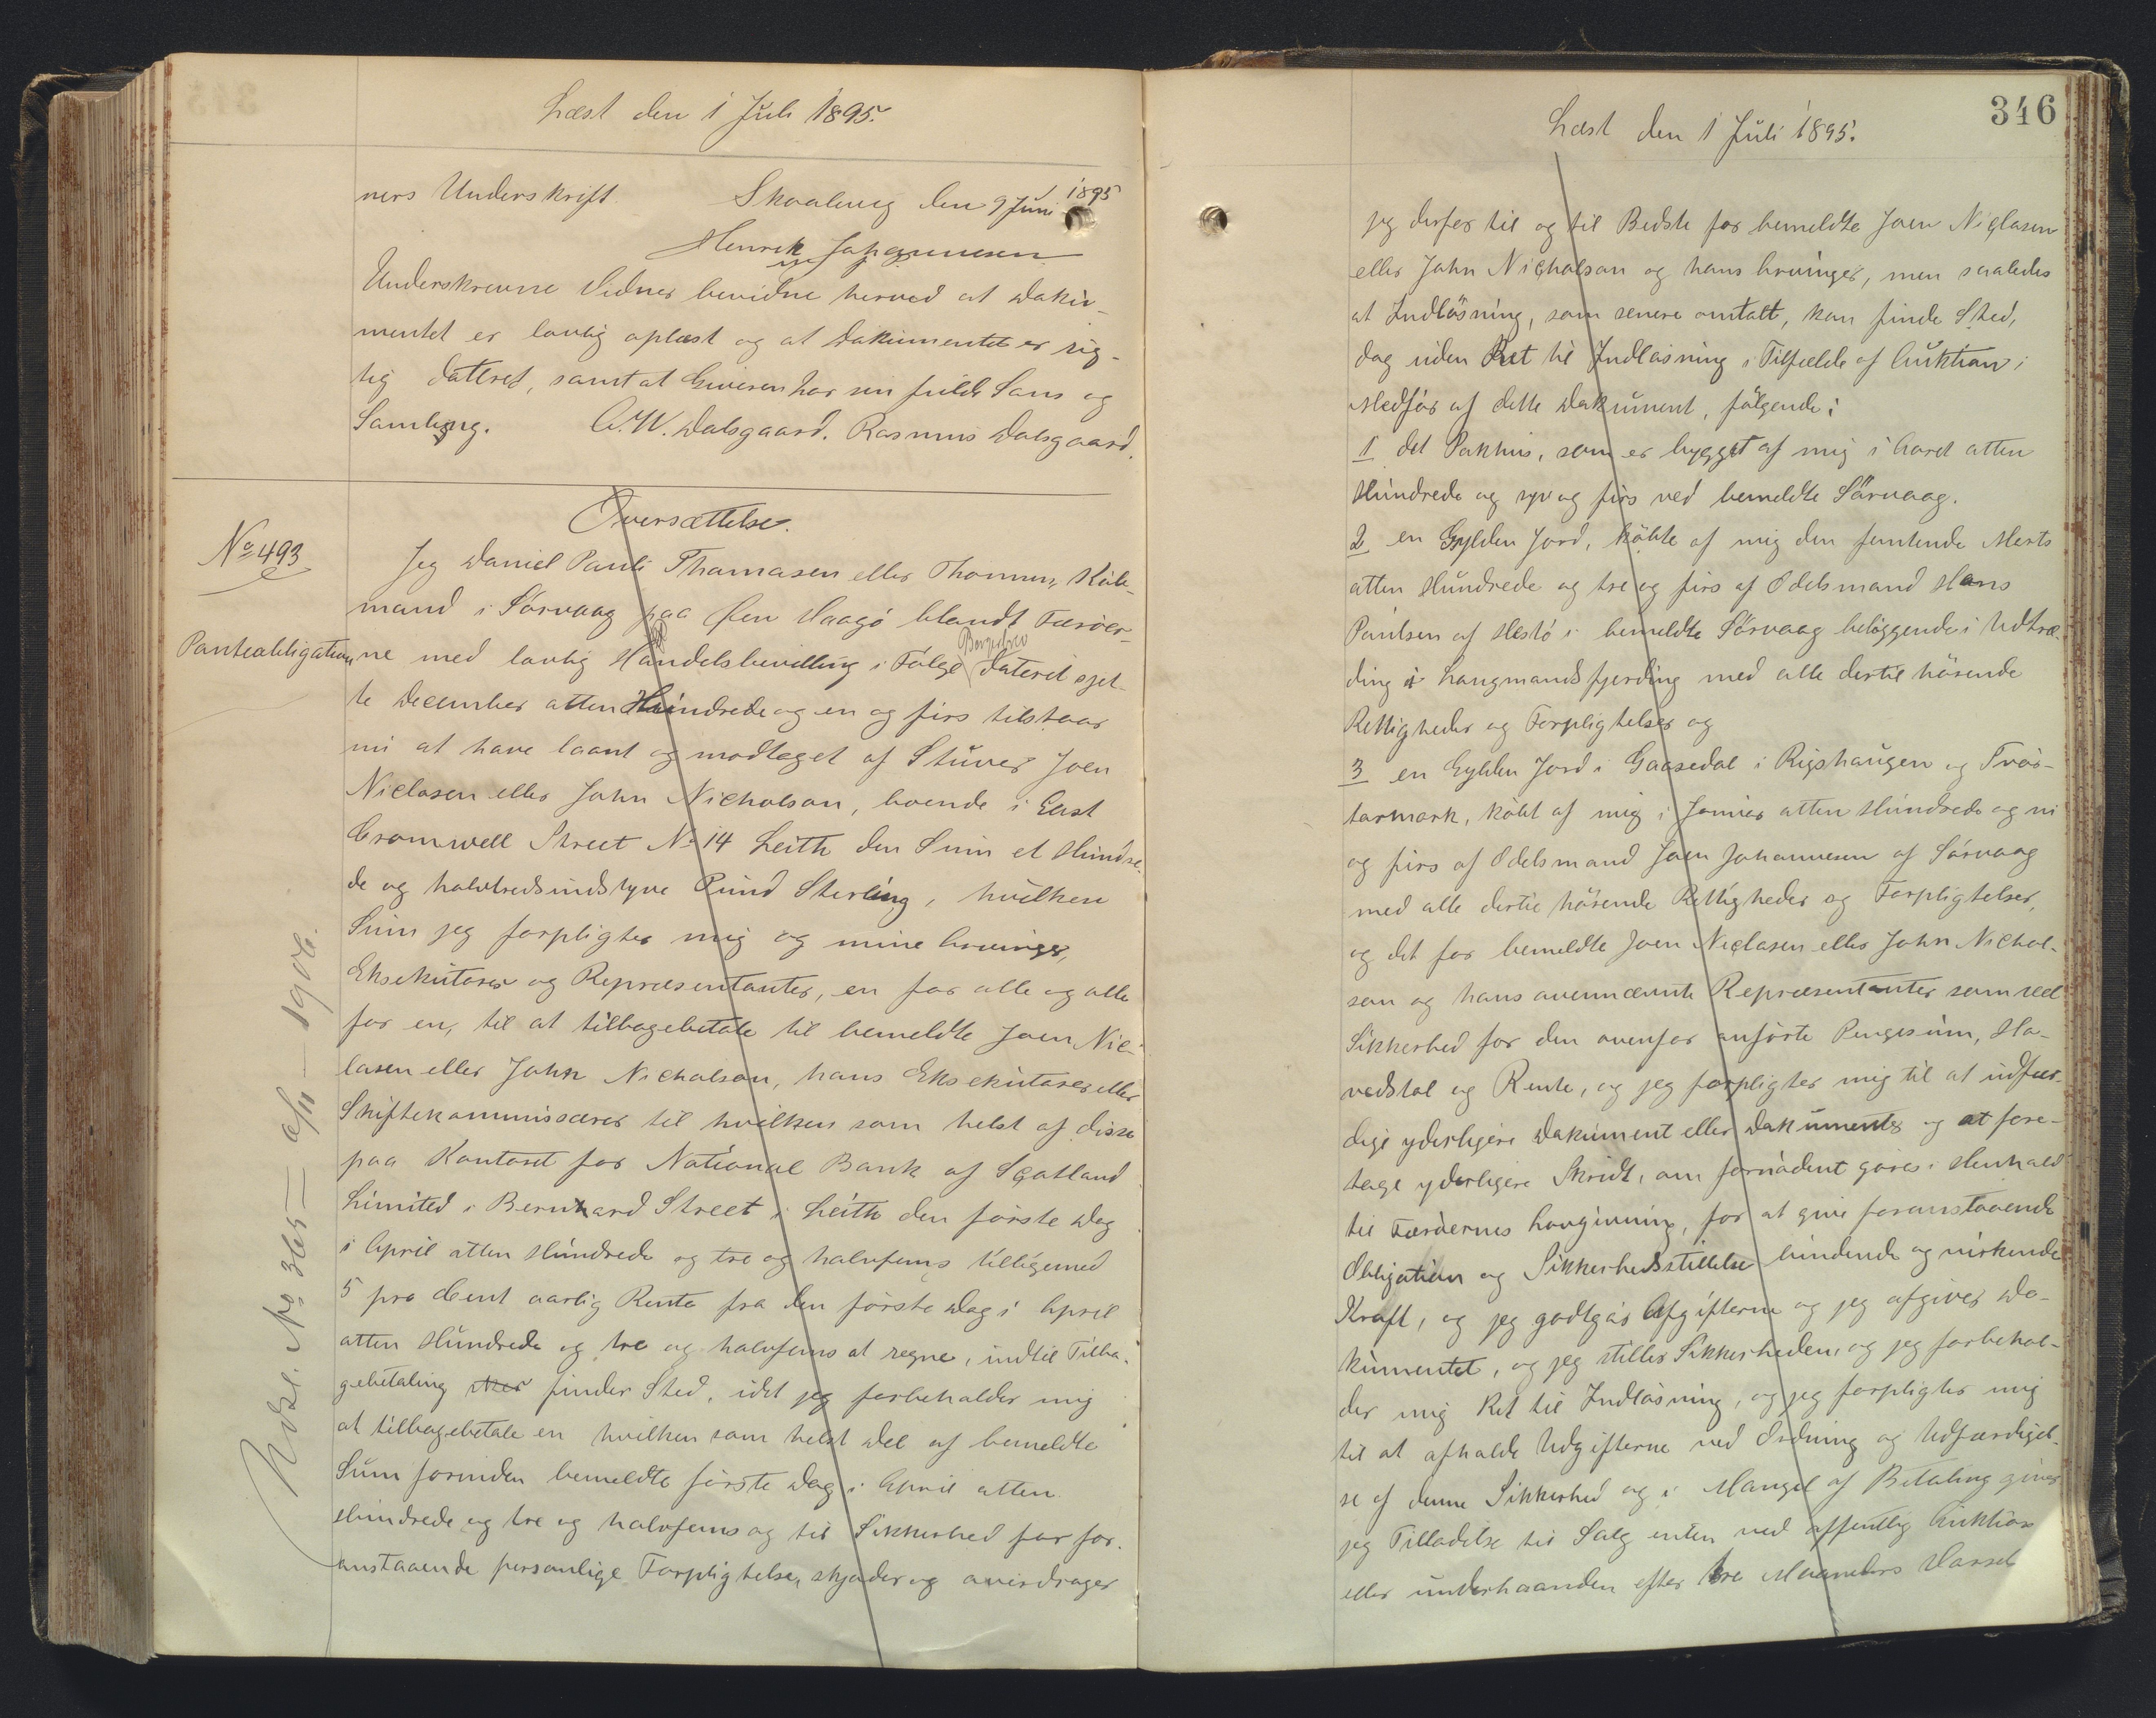 Læst den 1 Juli 1895.
ners Underskrift. Skaalevig den 9 Juni 1895
Henrik Johannesen
Underskrevne Vidner bevidne herved at Doku-
mentet er lovlig oplæst og at Dokumentet er rig-
tig dateret, samt at Giveren har sin fulde Sans og
Samling. C.W. Dalsgaard. Rasmus Dalsgaard.
No 493
Panteobligation
Oversættelse.
Jeg Daniel Pauli Thomasen eller Thomsen, Køb-
mand i Sörvaag paa Øen Waagö blandt Færöer-
ne med lovlig Handelsbevilling i Følge Borgerbrev dateret sjet-
te December atten Hundrede og en og firs tilstaar
mi at have laant og modtaget af Stuver Joen
Niclasen eller John Nicholson, boende i East
Cromwell Street No 14 Leith den Sum et Hundre-
de og halvtredsindstyve Pund Sterling, hvilken
Sum jeg forpligter mig og mine Arvinger,
Eksekutorer og Repræsentanter, en for alle og alle
for en, til at tilbagebetale til bemeldte Joen Nic-
lasen eller John Nicholson, hans Eksekutorer eller
Skiftekommissærer til hvilken som helst af disse
paa Kontoret for National Bank of Scotland
Limited i Bernhard Street i Leith den første Dag
i April atten Hundrede og tre og halvfems tilligemed
5 pro Cent aarlig Rente fra den første Dag i April
atten Hundrede og tre og halvfems at regne, indtil Tilba-
gebetaling finder Sted, idet jeg forbeholder mig
at tilbagebetale en hvilken som helst Del af bemeldte
Sum forinden bemeldte første Dag i April atten
Hundrede og tre og halvfems og til Sikkerhed for for-
anstaaende personlige Forpligtelse, skjøder og overdrager
Udsl. No 365 = 1906.
346
Læst den 1 Juli 1895.
jeg derfor til og til Bedste for bemeldte Joen Niclasen
eller John Nicholson og hans Arvinger, men saaledes
at Indlösning, som senere omtalt, kan finde Sted,
dog uden Ret til Indlösning i Tilfælde af Auktion i
Medför af dette Dokument, fölgende:
1 det Pakhus, som er bygget af mig i Aaret atten
Hundrede og syv og firs ved bemeldte Sörvaag.
2 en Gylden Jord, köbte af mig den femtende Marts
atten Hundrede og tre og firs af Odelsmand Hans
Paulsen af Hestö i bemeldte Sörvaag beliggende i Udtræ-
ding i Laugmandsfjerding med alle dertil hörende
Rettigheder og Forpligtelser og
3 en Gylden Jord i Gaasedal i Rigshaugen og Tvör-
tarmark, köbt af mig i Januar atten Hundrede og ni
og firs af Odelsmand Joen Johannesen af Sörvaag
med alle dertil hörende Rettigheder og Forpligtelser,
og det for bemeldte Joen Niclasen eller John Nichol-
son og hans ovennævnte Repræsentanter som reel
Sikkerhed for den ovenfor anförte Pengesum, Ho-
vedstol og Rente, og jeg forpligter mig til at udfær-
dige yderligere Dokument eller Dokumenter og at fore-
tage yderligere Skridt, om fornödent göres i Henhold
til Færöernes Lovgivning, for at give foranstaaende
Obligation og Sikkerhedsstillelse bindende og virkende
Kraft, og jeg godtgör Afgifterne og jeg afgiver Do-
kumentet, og jeg stiller Sikkerheden, og jeg forbehol-
der mig Ret til Indlösning, og jeg forpligter mig
til at afholde Udgifterne ved Ordning og Udfærdigel-
se af denne Sikkerhed og i Mangel af Betaling giver
jeg Tilladelse til Salg enten ved offentlig Auktion
eller underhaanden efter tre Maaneders Varsel